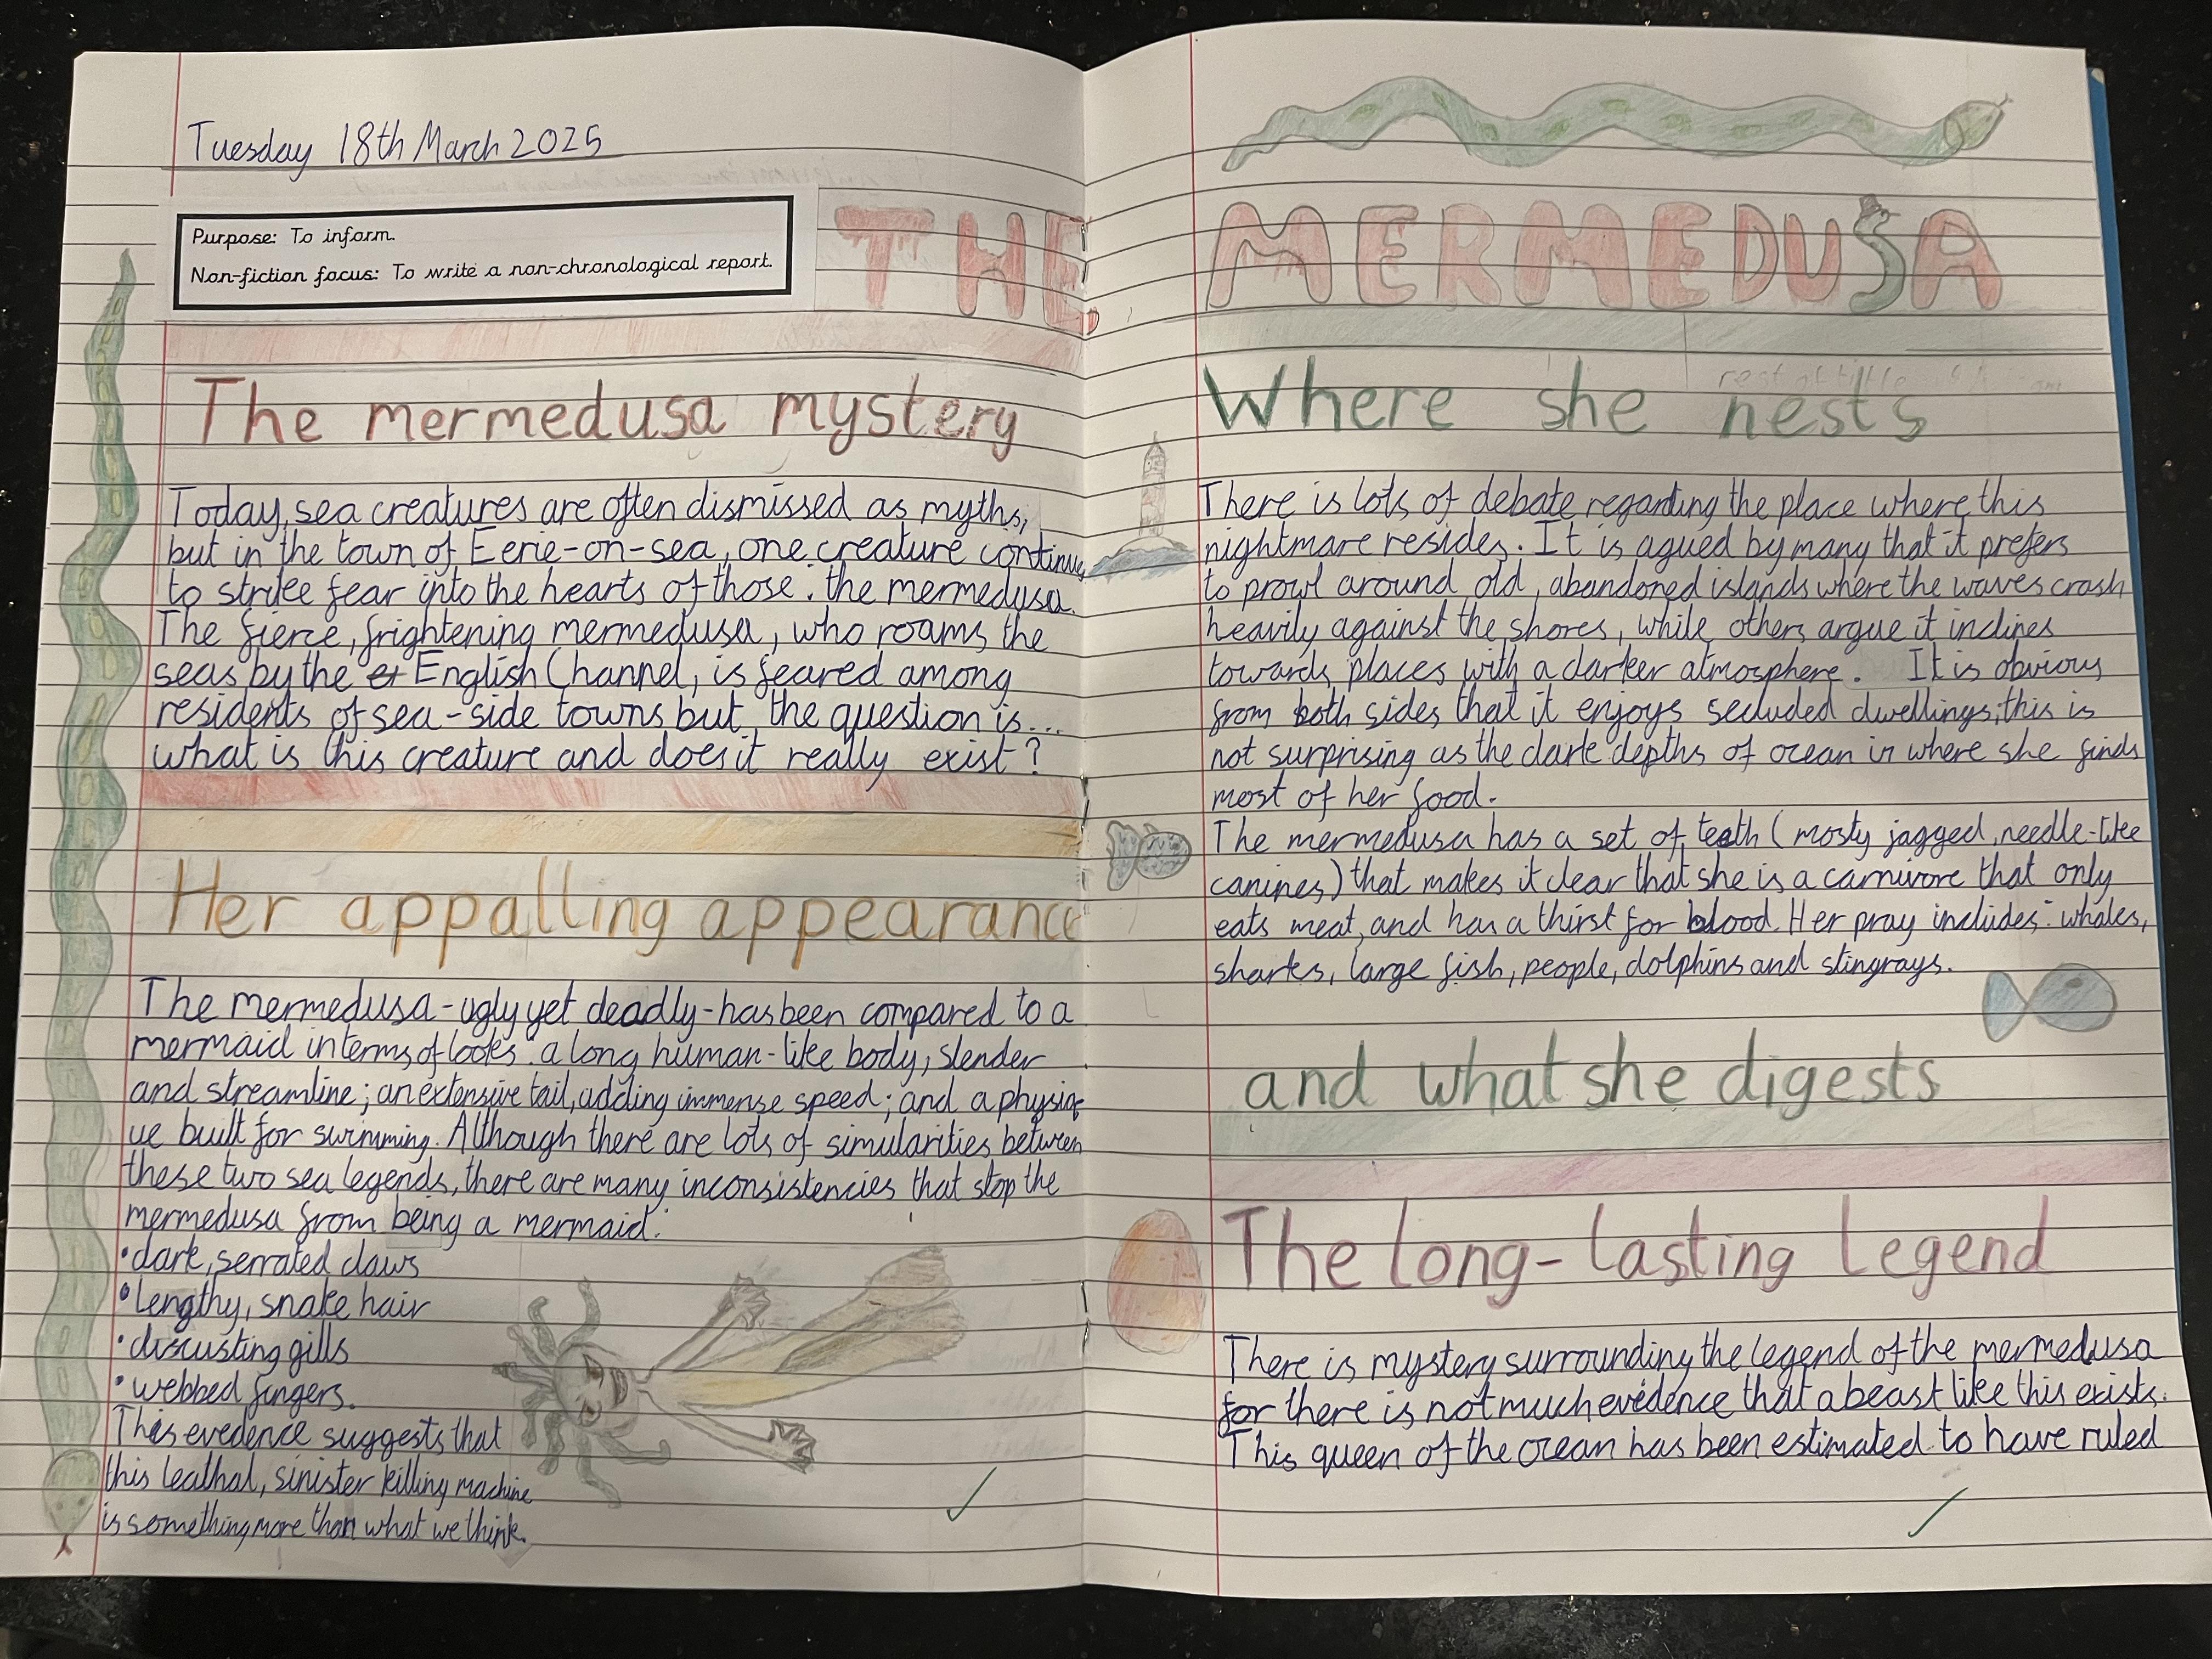 Tuesday 18th March 2025
Purpose: To inform.
Non-fiction focus: To write a non-chronological report.
THE MERMEDUSA
The mermedusa mystery
Today, sea creatures are often dismissed as myths,
but in the town of Eerie-on-sea, one creature continues
to strike fear into the hearts of those: the mermedusa.
The fierce, frightening mermedusa, who roams the
seas by the English Channel, is feared among
residents of sea-side towns but the question is...
what is this creature and does it really exist?
Her appalling appearance
The mermedusa-ugly yet deadly-has been compared to a
mermaid in terms of looks: a long human-like body, slender
and streamline; an extensive tail, adding immense speed; and a physiq
ue built for swimming. Although there are lots of simularities between
these two sea legends, there are many inconsistencies that stop the
mermedusa from being a mermaid:
•dark, serrated claws
•lengthy, snake hair
•discusting gills
•webbed fingers.
This evedence suggests that
this leathal, sinister killing machine
is something more than what we think.
Where she nests
rest of title
There is lots of debate regarding the place where this
nightmare resides. It is agued by many that it prefers
to prowl around old, abandoned islands where the waves crash
heavily against the shores, while others argue it inclines
towards places with a darker atmosphere. It is obvious
from both sides that it enjoys secluded dwellings; this is
not surprising as the dark depths of ocean is where she finds
most of her food.
The mermedusa has a set of teeth (mosty jagged, needle-like
canines) that makes it clear that she is a carnivore that only
eats meat, and has a thirst for blood. Her pray includes: whales,
sharks, large fish, people, dolphins and stingrays.
and what she digests
The long-lasting legend
There is mystery surrounding the legend of the mermedusa
for there is not much evidence that a beast like this exists.
This queen of the ocean has been estimated to have ruled